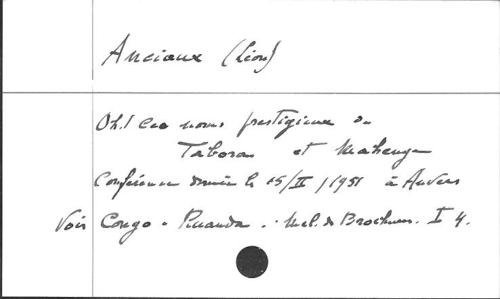 Anciaux (Léon)
Oh! Ces noms prestigieux de
Tabora et Mahenge
Conférence donnée le 15/II/1951 à Anvers
Voir Congo - Ruanda. - Mél. de Brochures. I 4.